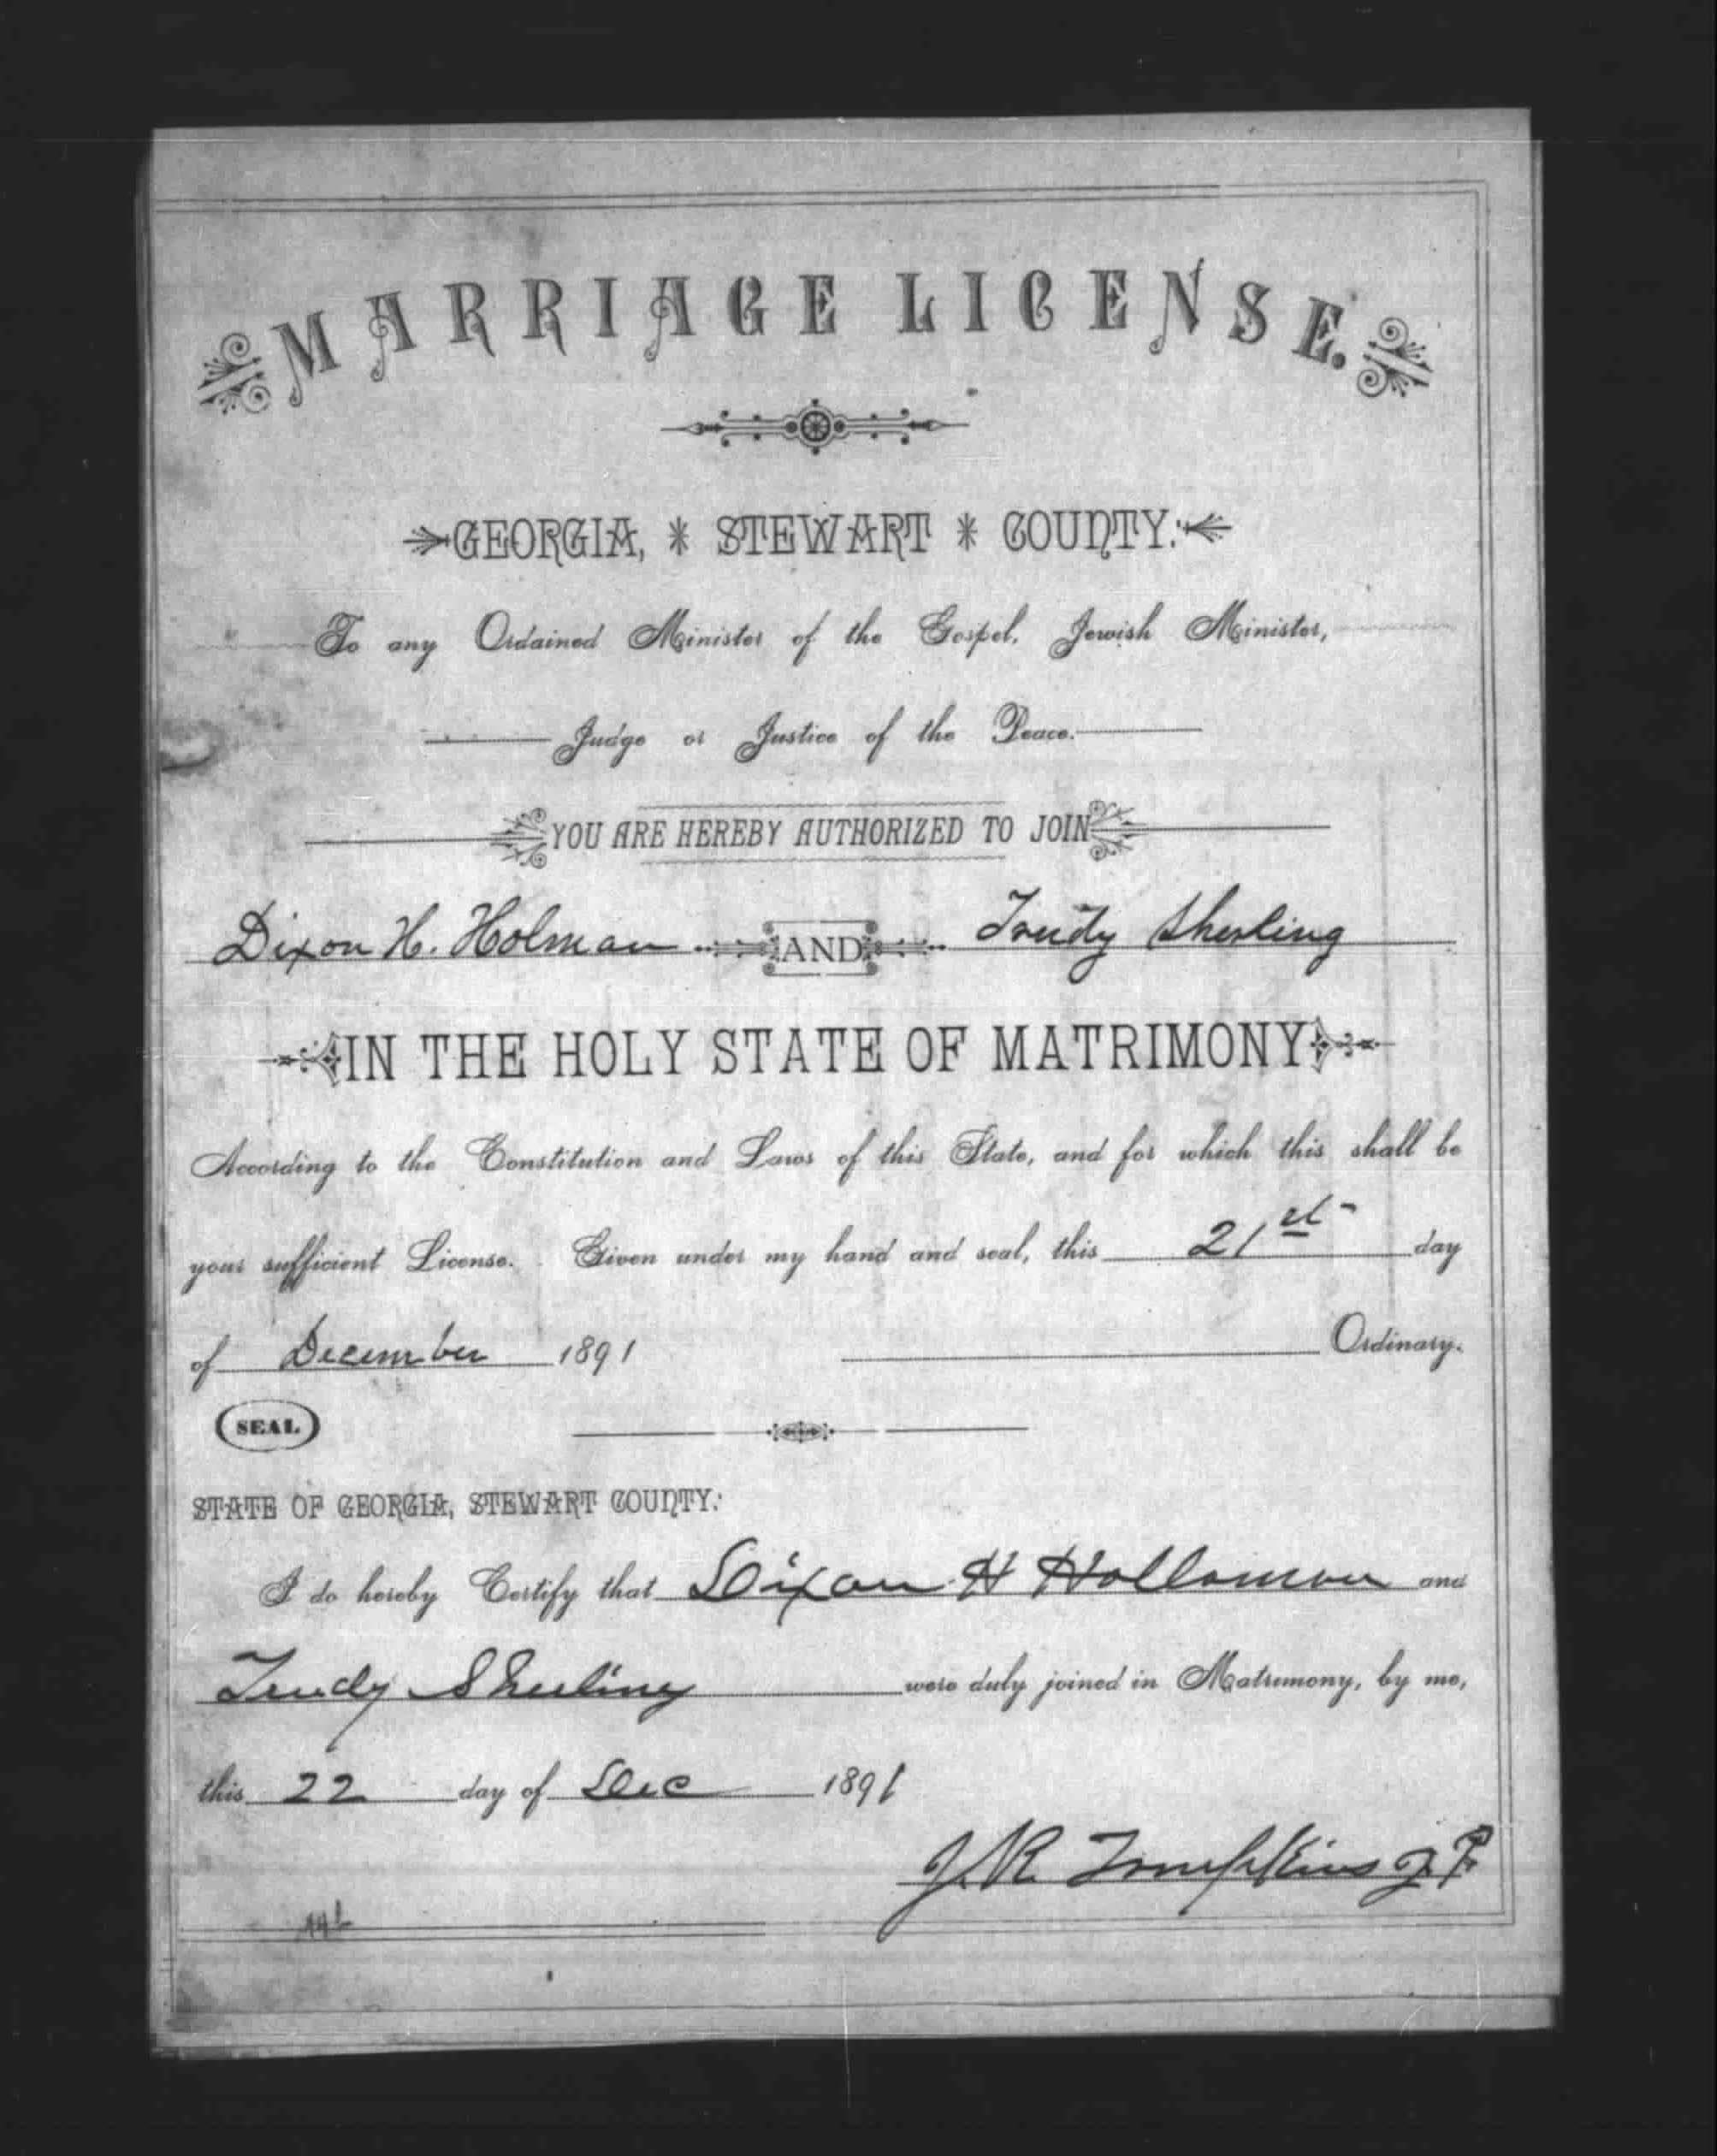 MARRIAGE LICENSE.
GEORGIA, * STEWART * COUNTY:
To any Ordained Minister of the Gospel, Jewish Minister,
Judge or Justice of the Peace.
YOU ARE HEREBY AUTHORIZED TO JOIN
Dixon H. Holman AND Trudy Sherling
IN THE HOLY STATE OF MATRIMONY
According to the Constitution and Laws of this State, and for which this shall be
your sufficient License. Given under my hand and seal, this 21st day
of December 1891 Ordinary.
SEAL
STATE OF GEORGIA, STEWART COUNTY:
I do hereby Certify that Dixon H Hollomon and
Trudy Sherling were duly joined in Matrimony, by me,
this 22 day of Dec 1891
J. R. Tompkins J. P.